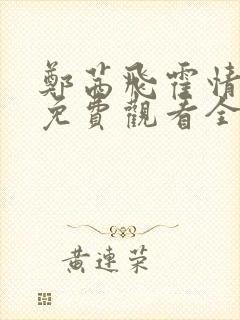 鄭茜飛霍情
免費觀看全
黃連榮